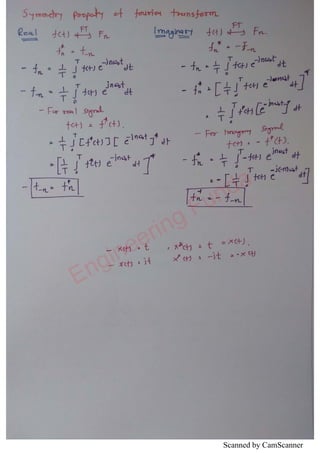 Symmetry property of fourier transform
Real f(t) FT ⟷ Fn
f*n = f-n
- fn = 1/T ∫0^T f(t) e^-jnω0t dt
- f-n = 1/T ∫0^T f(t) e^jnω0t dt
- For real signal
f(t) = f*(t).
= 1/T ∫0^T [f*(t)] [e^-jnω0t]* dt
= [1/T ∫0^T f(t) e^-jnω0t dt]*
- f-n = f*n
Imaginary f(t) FT ⟷ Fn
fn* = -f-n
- fn = 1/T ∫0^T f(t) e^-jnω0t dt
- fn* = [1/T ∫0^T f(t) e^-jnω0t dt]*
= 1/T ∫0^T f*(t) [e^-jnω0t]* dt
- For Imaginary signal
f(t) = - f*(t).
- fn* = 1/T ∫0^T -f(t) e^jnω0t dt
= - [1/T ∫0^T f(t) e^-j(-n)ω0t dt]
fn* = - f-n
- x(t) = t , x*(t) = t = x(t).
- x(t) = jt x*(t) = -jt = -x(t)
Engineering
Scanned by CamScanner